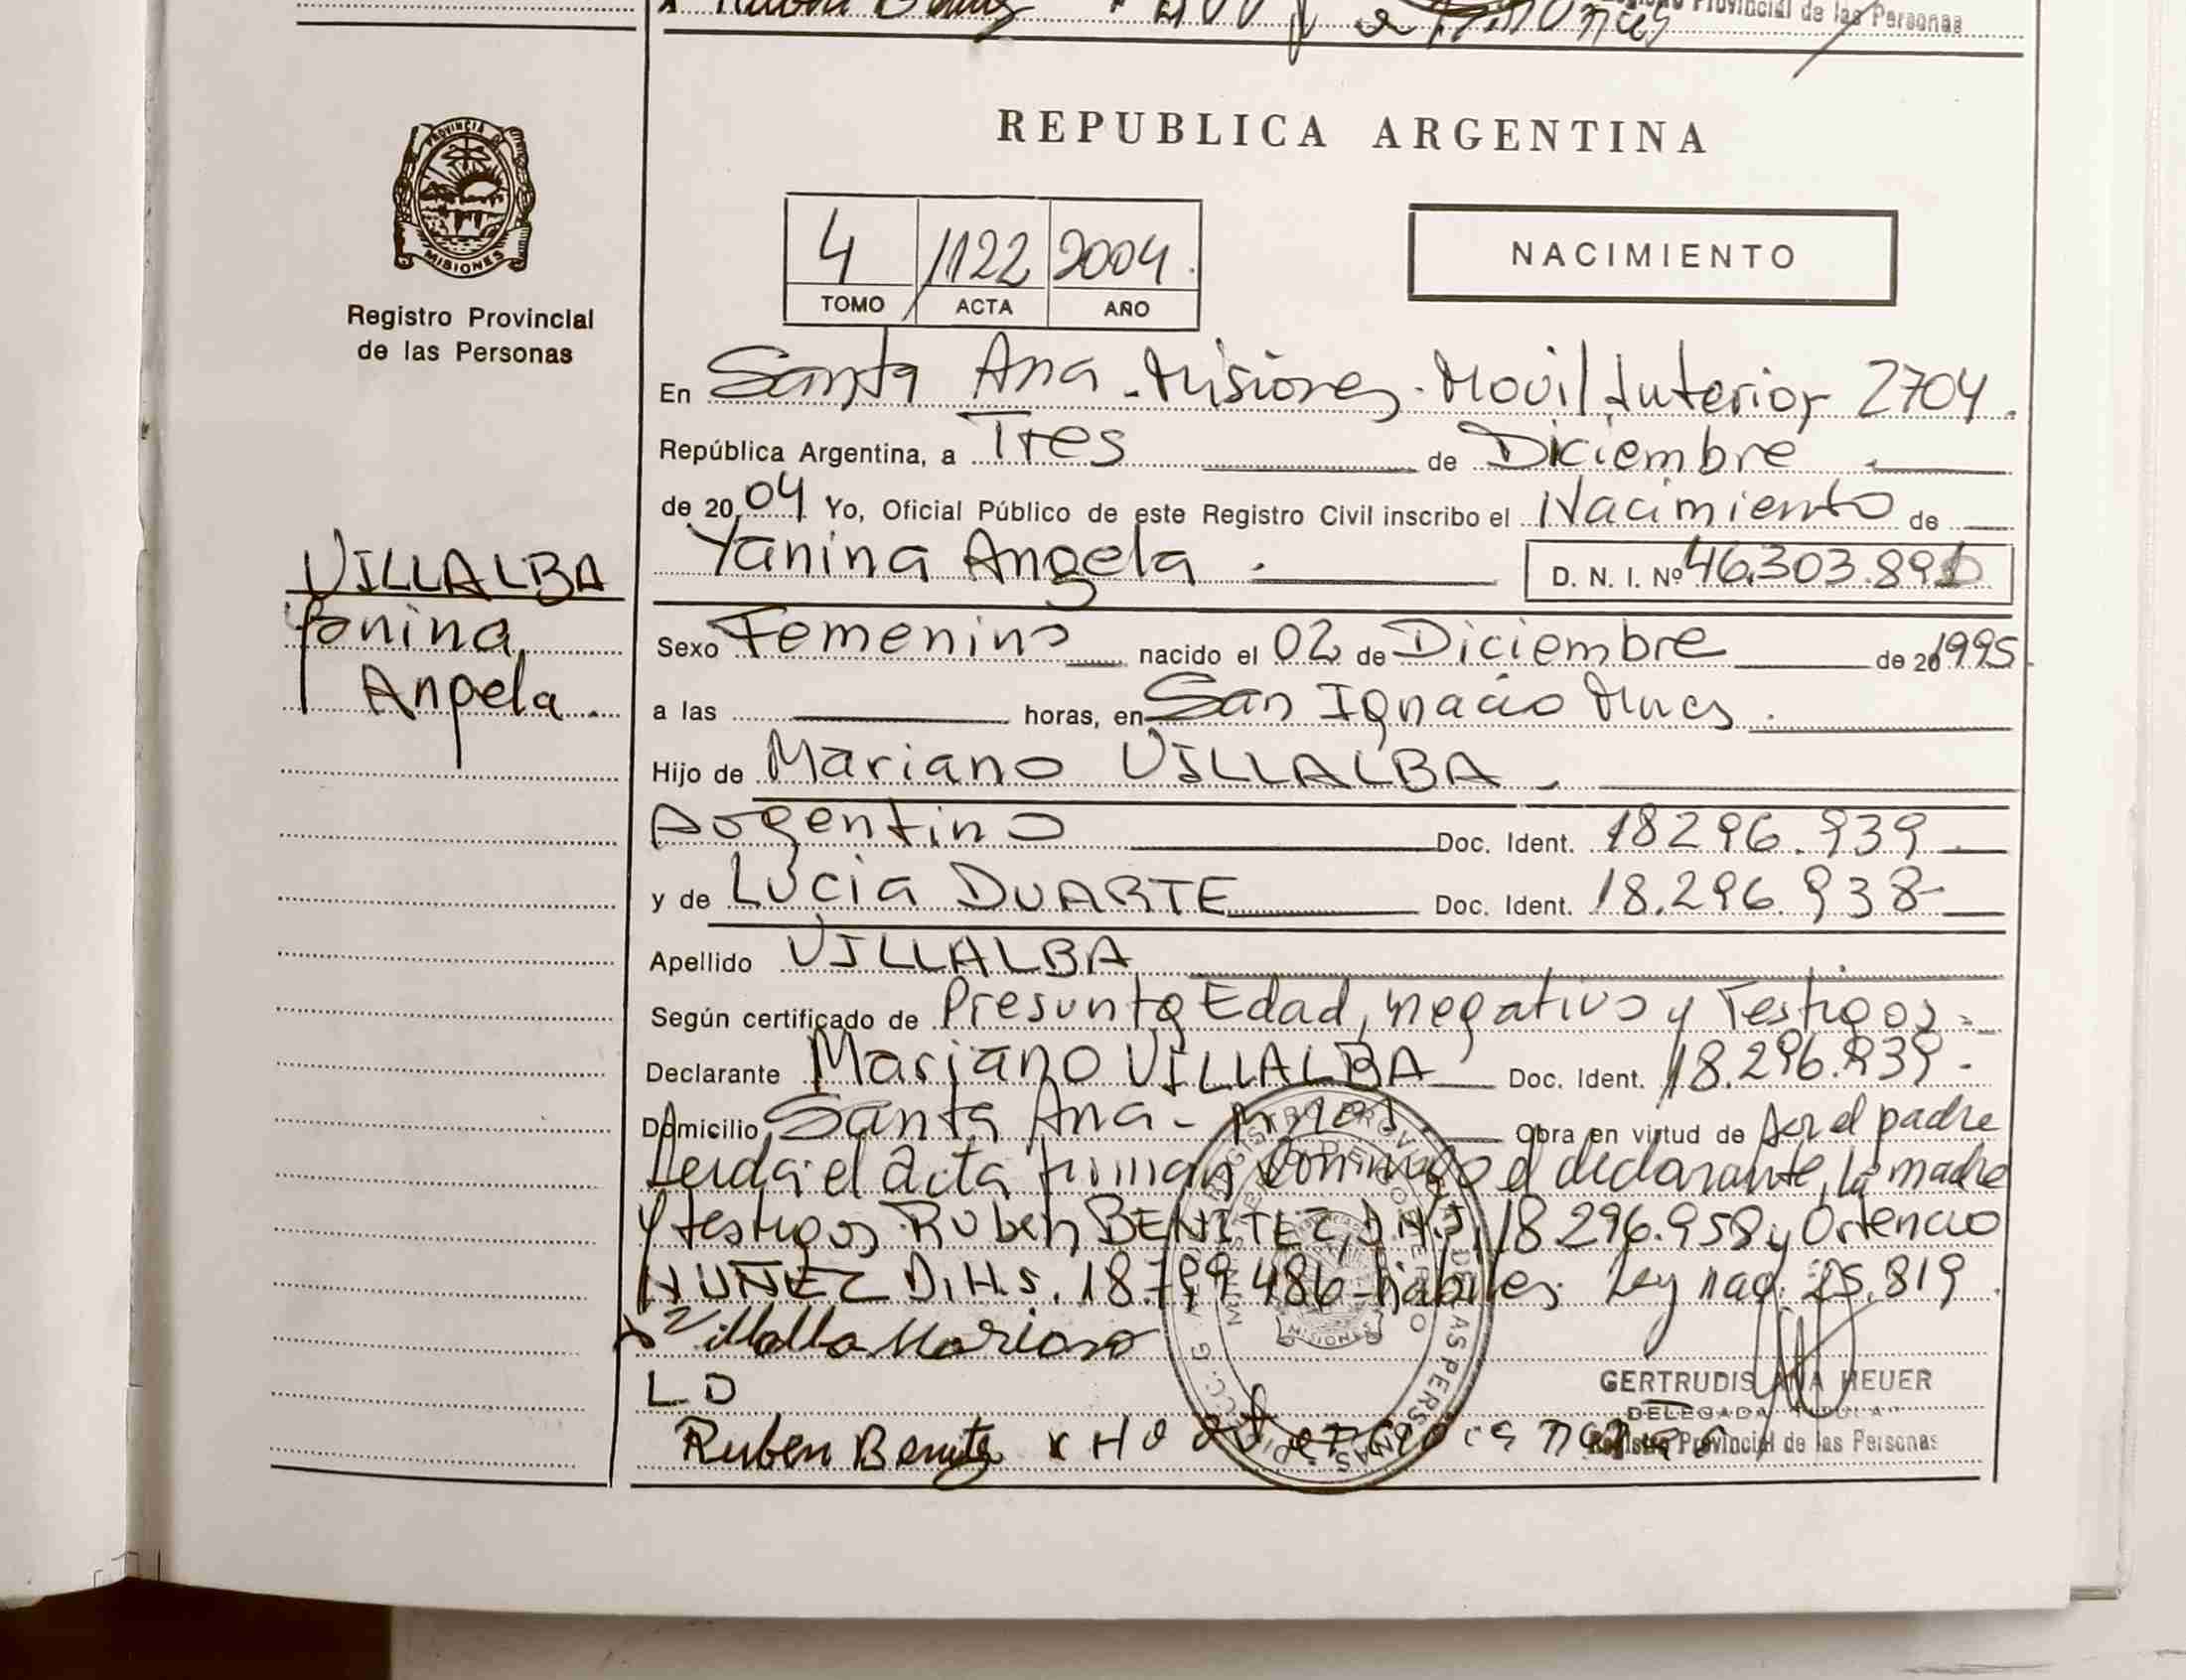 Provincial de las Personas
PROVINCIA DE
MISIONES
Registro Provincial
de las Personas
REPUBLICA ARGENTINA
4 1122 2004.
TOMO ACTA AÑO
NACIMIENTO
En Santa Ana - Misiones. Movil Interior 2704.
República Argentina, a Tres de Diciembre
de 2004 Yo, Oficial Público de este Registro Civil inscribo el Nacimiento de
Yanina Angela. D. N. I. Nº 46.303.89
VILLALBA
Yanina
Angela.
Sexo Femenino nacido el 02 de Diciembre de 1995
a las horas, en San Ignacio Mnes.
Hijo de Mariano VILLALBA.
Argentino Doc. Ident. 18296.939
y de Lucia DUARTE Doc. Ident. 18.296.938
Apellido VILLALBA
Según certificado de Presunta Edad, negativo y Testigos.
Declarante Mariano VILLALBA Doc. Ident. 18.296.939-
Domicilio Santa Ana - Mnes. Obra en virtud de ser el padre
Leida el acta firman conmigo el declarante, la madre
y testigos Ruben BENITEZ, D.N.I. 18 296.958 y Ortencio
NUÑEZ D.N.I. 18.799 486 habiles. Ley nac. 25.819
x Villalba Mariano
L D
GERTRUDIS ANA HEUER
DELEGADA TITULAR
Registro Provincial de las Personas
Ruben Benitez x